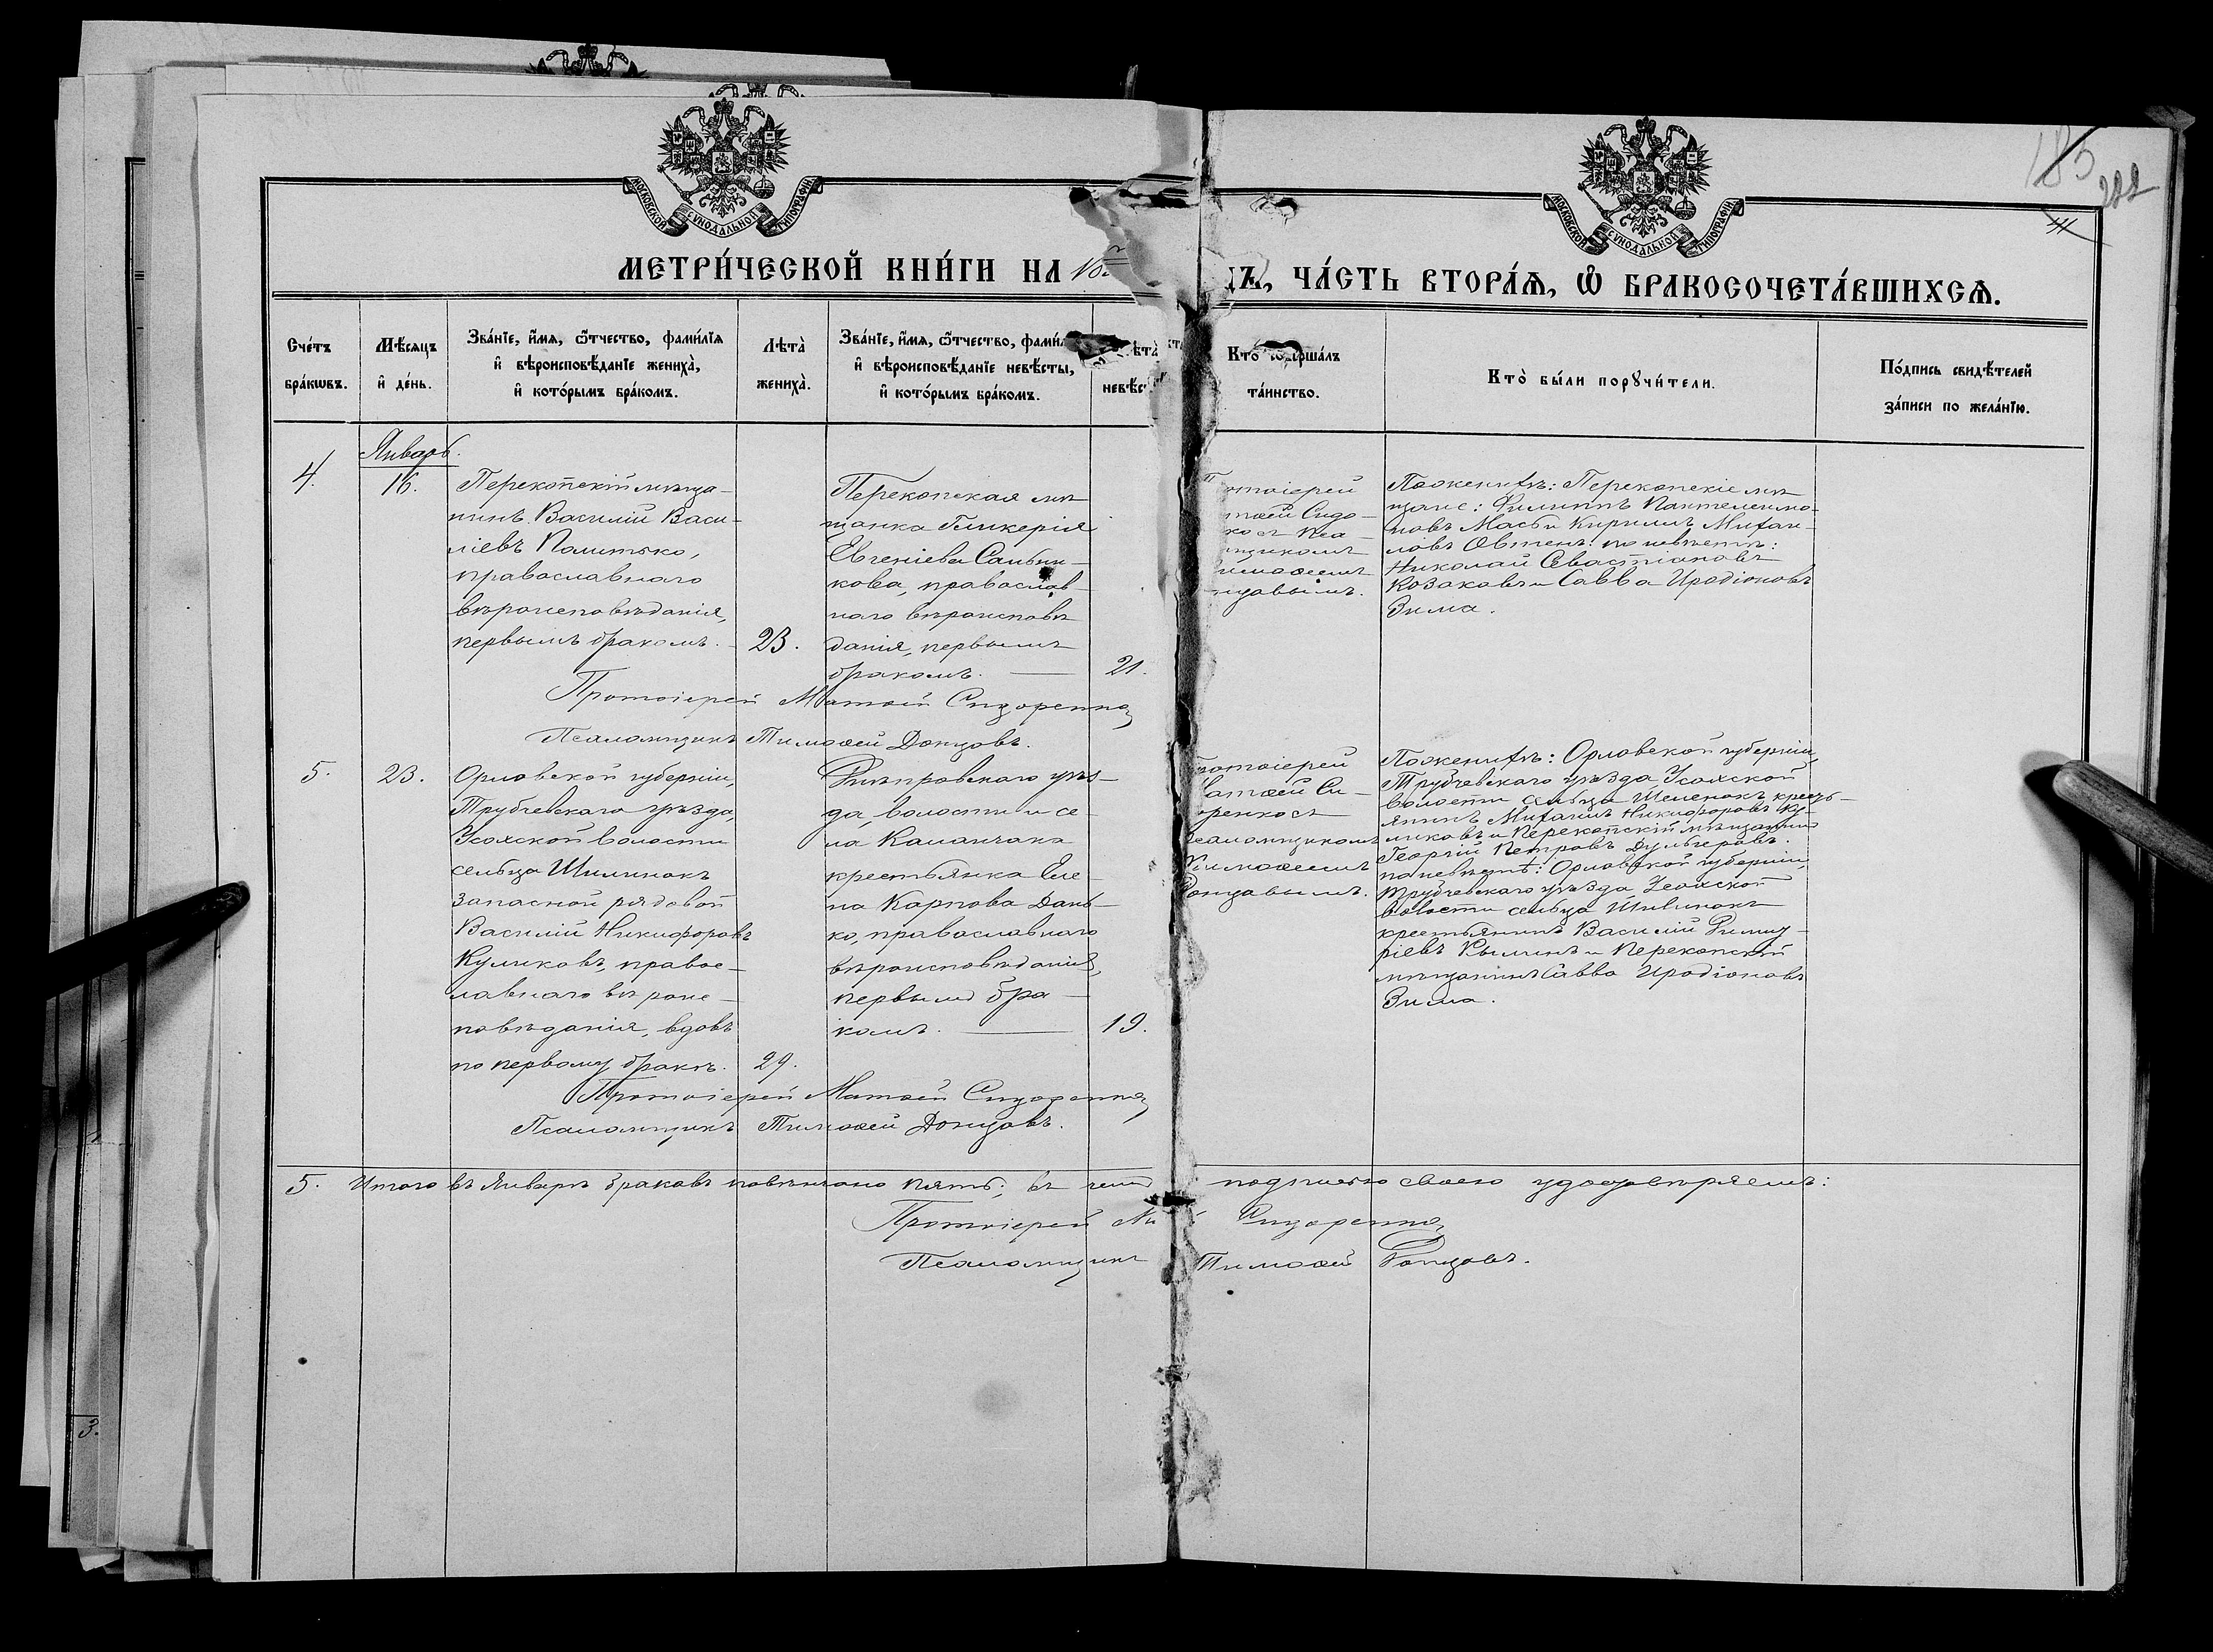 МОСКОВСКОЙ СУНОДАЛЬНОЙ ТИПОГРАФІИ
МОСКОВСКОЙ СУНОДАЛЬНОЙ ТИПОГРАФІИ
185
222
МЕТРИ́ЧЕСКОЙ КНИ́ГИ НА
ЧА́СТЬ ВТОРА́Ѧ, Ѽ БРАКОСОЧЕТА́ВШИХСѦ.
Сче́тъ бра́кѡвъ.
Мѣ́сяцъ и҆ де́нь.
Зва́нїе, и҆́мѧ, ѻ҆́тчество, фами́лїѧ
и҆ вѣроисповѣ́данїе жениха̀,
и҆ кото́рымъ бра́комъ.
Лѣта̀ жениха̀.
Зва́нїе, и҆́мѧ, ѻ҆́тчество,
и҆ вѣроисповѣ́данїе невѣ́сты,
и҆ кото́рымъ бра́комъ.
Кто̀ соверша́лъ
та́инство.
Кто̀ бы́ли порꙋчи́тели.
По́дпись свидѣ́телей
за́писи по жела́нїю.
Январь.
4.
16.
Перекопскій мѣща-
нинъ Василій Васи-
ліевъ Политько,
православнаго
вѣроисповѣданія,
первымъ бракомъ. 23.
Перекопская мѣ
щанка Гликерія
Евгеніева Сальни-
кова, православ-
наго вѣроисповѣ
данія, первымъ
бракомъ. 21.
Пожениху: Перекопскіе мѣ
щане: Филиппъ Пантелеимо-
новъ Масьи Кириллъ Михаи-
ловъ Овтен: по невѣстѣ:
Николай Севастіановъ
Козаковъ и Савва Иродіоновъ
Зима.
Протоіерей Матѳей Сидоренко
Псаломщикъ Тимоѳей Донцовъ.
5.
23.
Орловской губерніи,
Трубчевскаго уѣзда,
Усохской волости
сельца Шилинокъ
запасной рядовой
Василій Никифоровъ
Куликовъ, правос-
лавнаго вѣроис-
повѣданія, вдовъ
по первому бракѣ. 29.
Днѣпровскаго уѣз-
да, волости и се-
ла Каланчака
крестьянка Еле-
на Карпова Дань-
ко, православнаго
вѣроисповѣданія,
первымъ бра-
комъ. 19.
Матѳей Си-
доренко съ
псаломщикомъ
Тимоѳеемъ
Донцовымъ.
Пожениху: Орловской губерніи,
Трубчевскаго уѣзда Усохской
волости сельца Шеленокъ кресть-
янинъ Михаилъ Никифоровъ Ку-
ликовъ и Перекопскій мѣщанинъ
Георгій Петровъ Дульгеровъ.
по невѣстѣ: Орловской губерніи,
Трубчевскаго уѣзда Усохской
волости сельца Шилинокъ
крестьянинъ Василій Димит-
ріевъ Кылинъ и Перекопскій
мѣщанинъ Савва Иродіоновъ
Зима.
Протоіерей Матѳей Сидоренко
Псаломщикъ Тимоѳей Донцовъ.
5. Итого въ Январѣ браковъ повѣнчано пять; въ чемъ подписью своею удостовѣряемъ:
Протоіерей Сидоренко
Псаломщикъ Тимоѳей Донцовъ.
3.